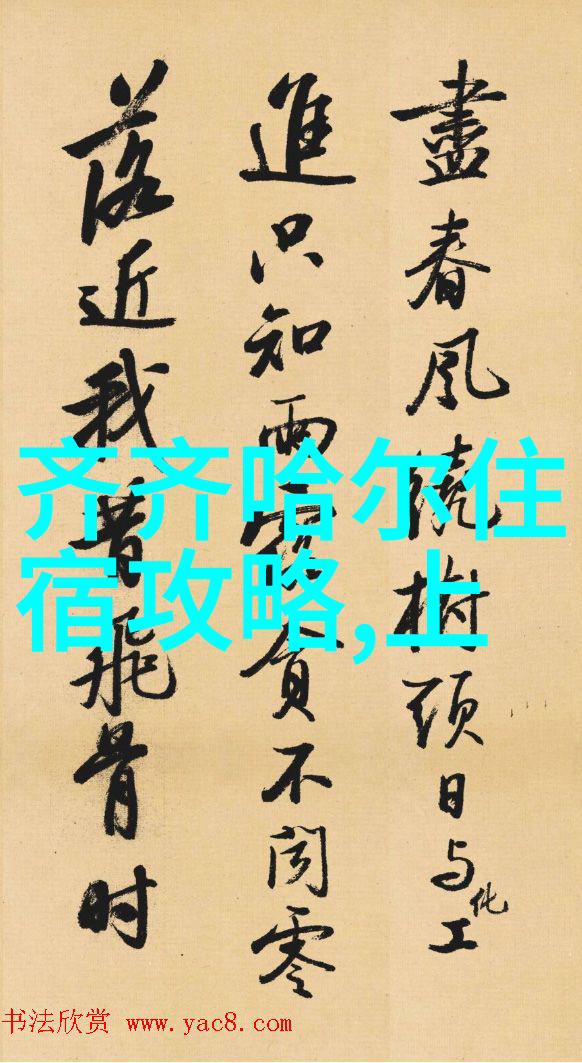 盡春風繞樹頭日与化工
進只知雨露貪不聞零
落近我昔飛骨时
齐齐哈尔住
宿攻略,上
书法欣赏 www.yac8.com